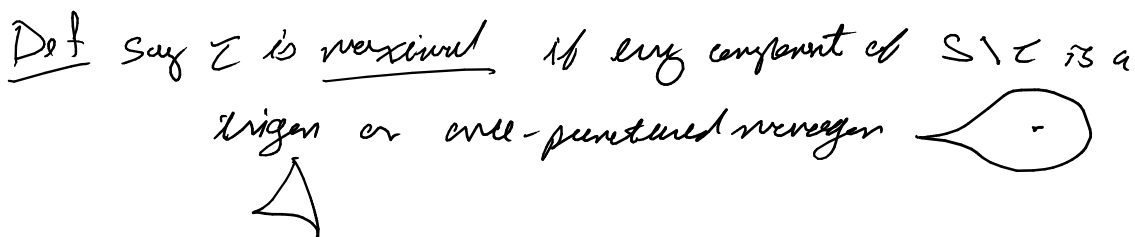 Def Say τ is maximal if every component of S∖τ is a
trigon or once-punctured monogon